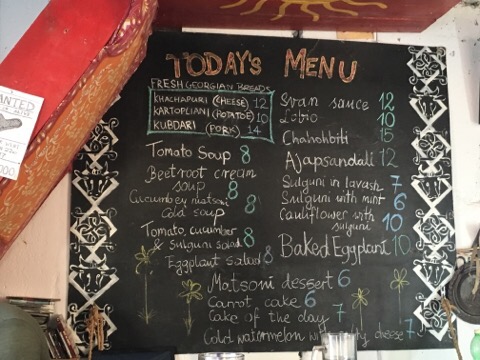 TODAY'S MENU
FRESH GEORGIAN BREADS
KHACHAPURI (CHEESE) 12
KARTOPLIANI (POTATOE) 10
KUBDARI (PORK) 14
Tomato Soup 8
Beetroot cream
soup 8
Cucumbey matsoni
Cold soup 8
Tomato, cucumber
& sulguni salad 8
Eggplant salad 8
Svan sauce 12
Lobio 10
Chahohbili 15
Ajapsandali 12
Sulguni in lavash 7
Sulguni with mint 6
Cauliflower with 10
sulguni
Baked Eggplant 10
Matsoni dessert 6
Carrot cake 6
Cake of the day 7
Cold watermelon with cheese 7
WANTED